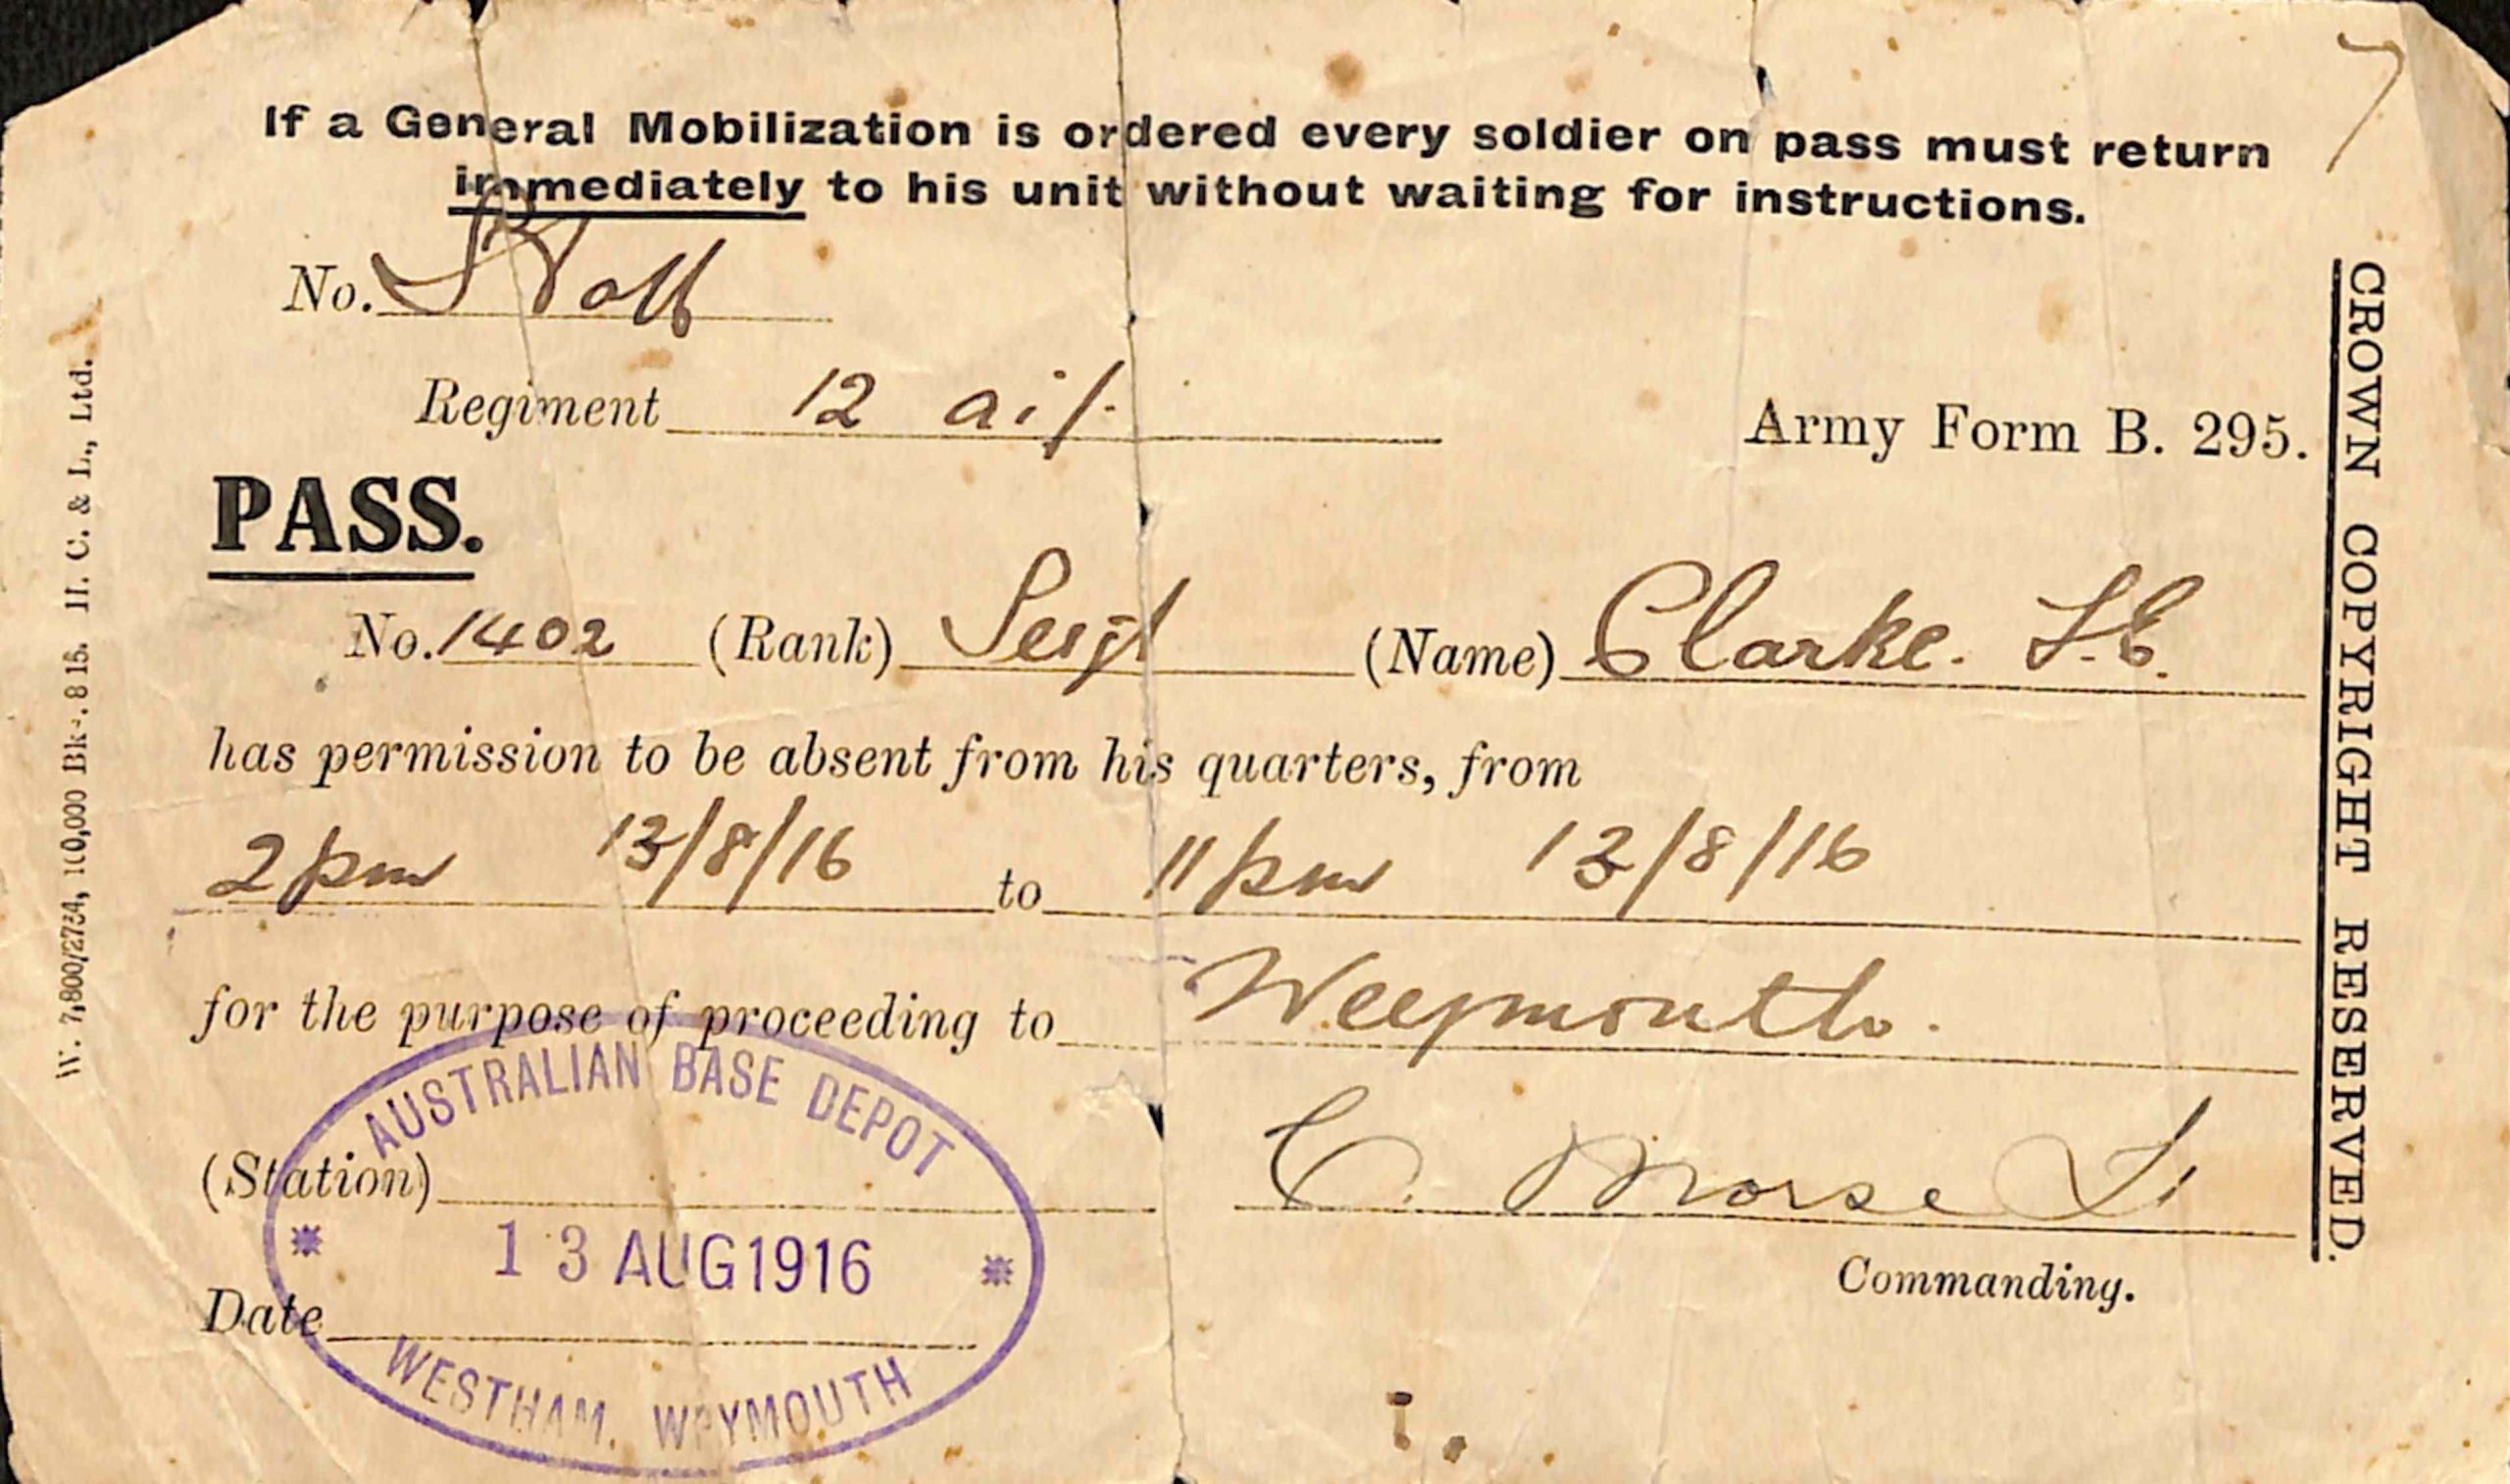 If a General Mobilization is ordered every soldier on pass must return
immediately to his unit without waiting for instructions.
No.
Regiment 12 aif.
Army Form B. 295.
PASS.
No. 1402 (Rank) Sergt (Name) Clarke.
has permission to be absent from his quarters, from
2pm 13/8/16 to 11pm 13/8/16
for the purpose of proceeding to Weepmouth.
AUSTRALIAN BASE DEPOT
(Station)
C. Morse Lt
13 AUG 1916
Commanding.
Date
WESTHAM. WEYMOUTH
CROWN COPYRIGHT RESERVED.
W. 7,800/2734, 100,000 Bks. 8 15. H. C. & L., Ltd.